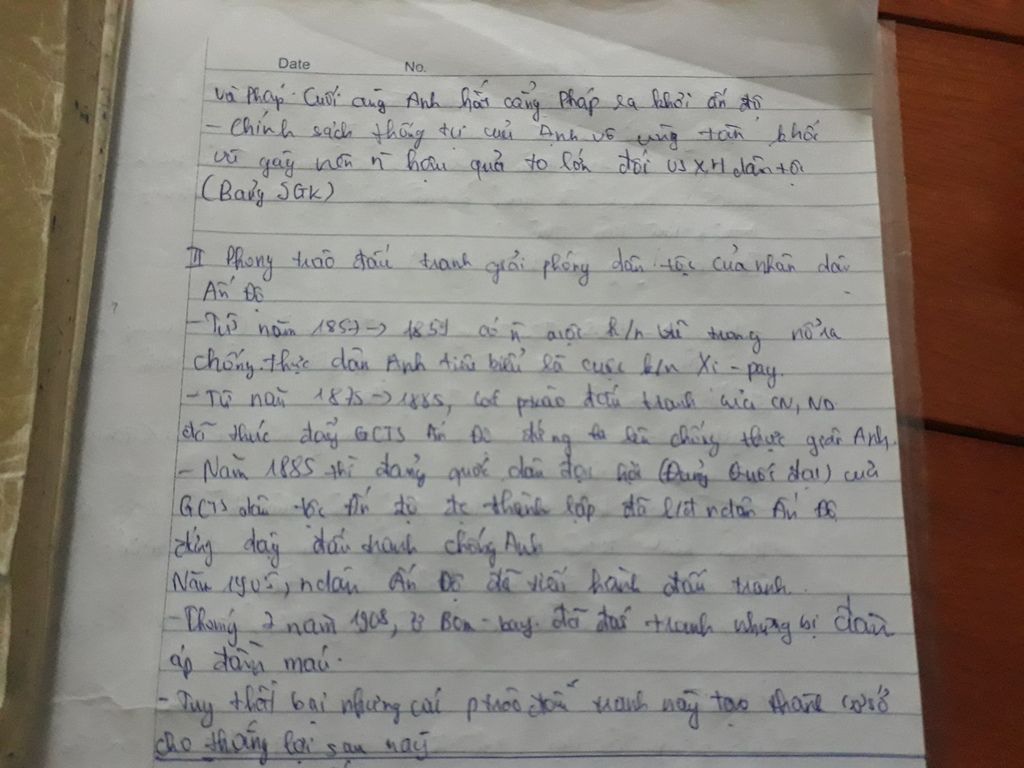 Date No.
và Pháp. Cuối cùng Anh hất cẳng Pháp ra khỏi ấn độ
- Chính sách thống trị của Anh vô cùng tàn khốc
và gây nên n hậu quả to lớn đối vs XH dân tộc
(Bảng SGK)
II Phong trào đấu tranh giải phóng dân tộc của nhân dân
Ấn Độ
- Từ năm 1857 → 1859 có n cuộc k/n vũ trang nổ ra
chống thực dân Anh tiêu biểu là cuộc k/n Xi - pay.
- Từ năm 1875 → 1885, các ptrào đấu tranh của CN, ND
đã thúc đẩy GCTS Ấn Độ đứng ra lên chống thực dân Anh.
- Năm 1885 thì đảng quốc dân đại hội (Đảng Quốc đại) của
GCTS dân tộc Ấn độ đc thành lập đã ndân Ấn Độ
đứng dậy đấu tranh chống Anh
Năm 1905, ndân Ấn Độ đã tiến hành đấu tranh.
- Tháng 7 năm 1908, ở Bom - bay. đã đấu tranh nhưng bị đàn
áp đẫm máu.
- Tuy thất bại nhưng các ptrào đấu tranh này tạo thành cơ sở
cho thắng lợi sau này